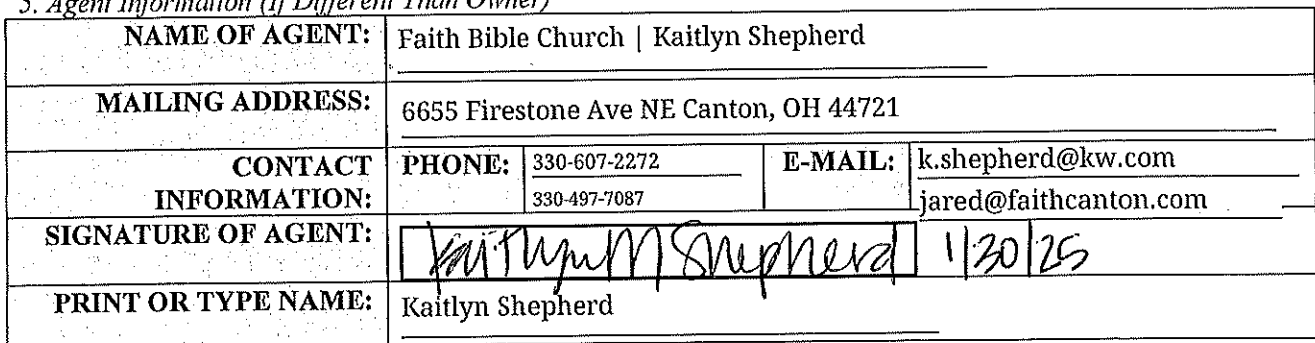 5. Agent Information (If Different Than Owner)
NAME OF AGENT: Faith Bible Church | Kaitlyn Shepherd
MAILING ADDRESS: 6655 Firestone Ave NE Canton, OH 44721
CONTACT INFORMATION: PHONE: 330-607-2272 E-MAIL: k.shepherd@kw.com
330-497-7087 jared@faithcanton.com
SIGNATURE OF AGENT: Kaitlyn M Shepherd 1/30/25
PRINT OR TYPE NAME: Kaitlyn Shepherd